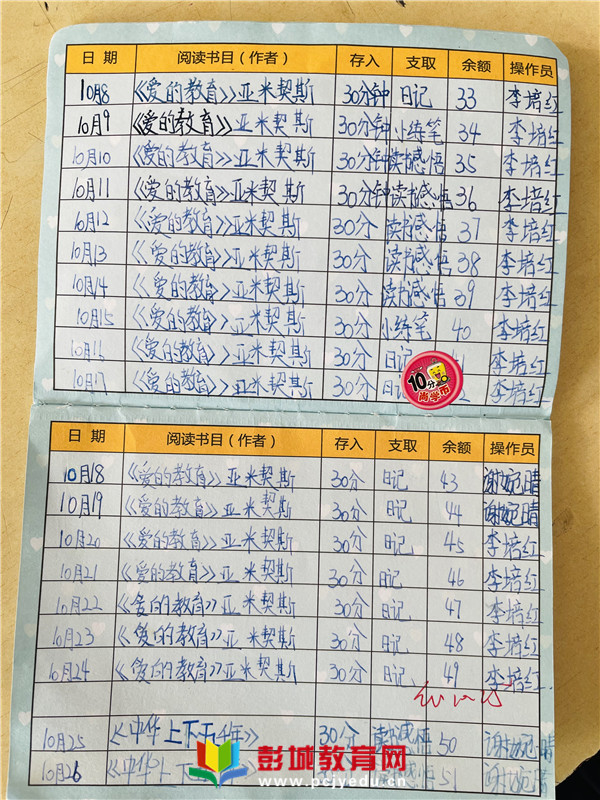 日 期 阅读书目(作者) 存入 支取 余额 操作员
10月8 《爱的教育》亚米契斯 30分钟 日记 33 李培红
10月9 《爱的教育》亚米契斯 30分钟 小练笔 34 李培红
10月10 《爱的教育》亚米契斯 30分钟 读书感悟 35 李培红
10月11 《爱的教育》亚米契斯 30分钟 读书感悟 36 李培红
10月12 《爱的教育》亚米契斯 30分 读书感悟 37 李培红
10月13 《爱的教育》亚米契斯 30分 读书感悟 38 李培红
10月14 《爱的教育》亚米契斯 30分 读书感悟 39 李培红
10月15 《爱的教育》亚米契斯 30分 小练笔 40 李培红
10月16 《爱的教育》亚米契斯 30分 日记 李培红
10月17 《爱的教育》亚米契斯 30分 日记 李培红
10分
日 期 阅读书目(作者) 存入 支取 余额 操作员
10月18 《爱的教育》亚米契斯 30分 日记 43 谢婉晴
10月19 《爱的教育》亚米契斯 30分 日记 44 谢婉晴
10月20 《爱的教育》亚米契斯 30分 日记 45 李培红
10月21 《爱的教育》亚米契斯 30分 日记 46 李培红
10月22 《爱的教育》亚米契斯 30分 日记 47 李培红
10月23 《爱的教育》亚米契斯 30分 日记 48 李培红
10月24 《爱的教育》亚米契斯 30分 日记 49 李培红
10月25 《中华上下五千年》 30分 读书感悟 50 谢婉晴
10月26 《中华上下五千年》 30分 读书感悟 51 谢婉晴
彭城教育网
www.pcjyedu.cn